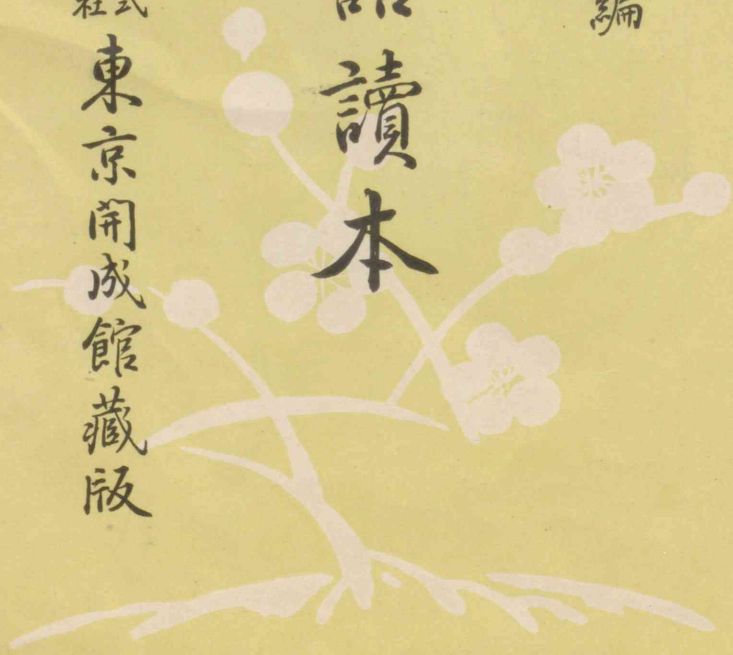 編
讀本
式
社
東京開成館藏版